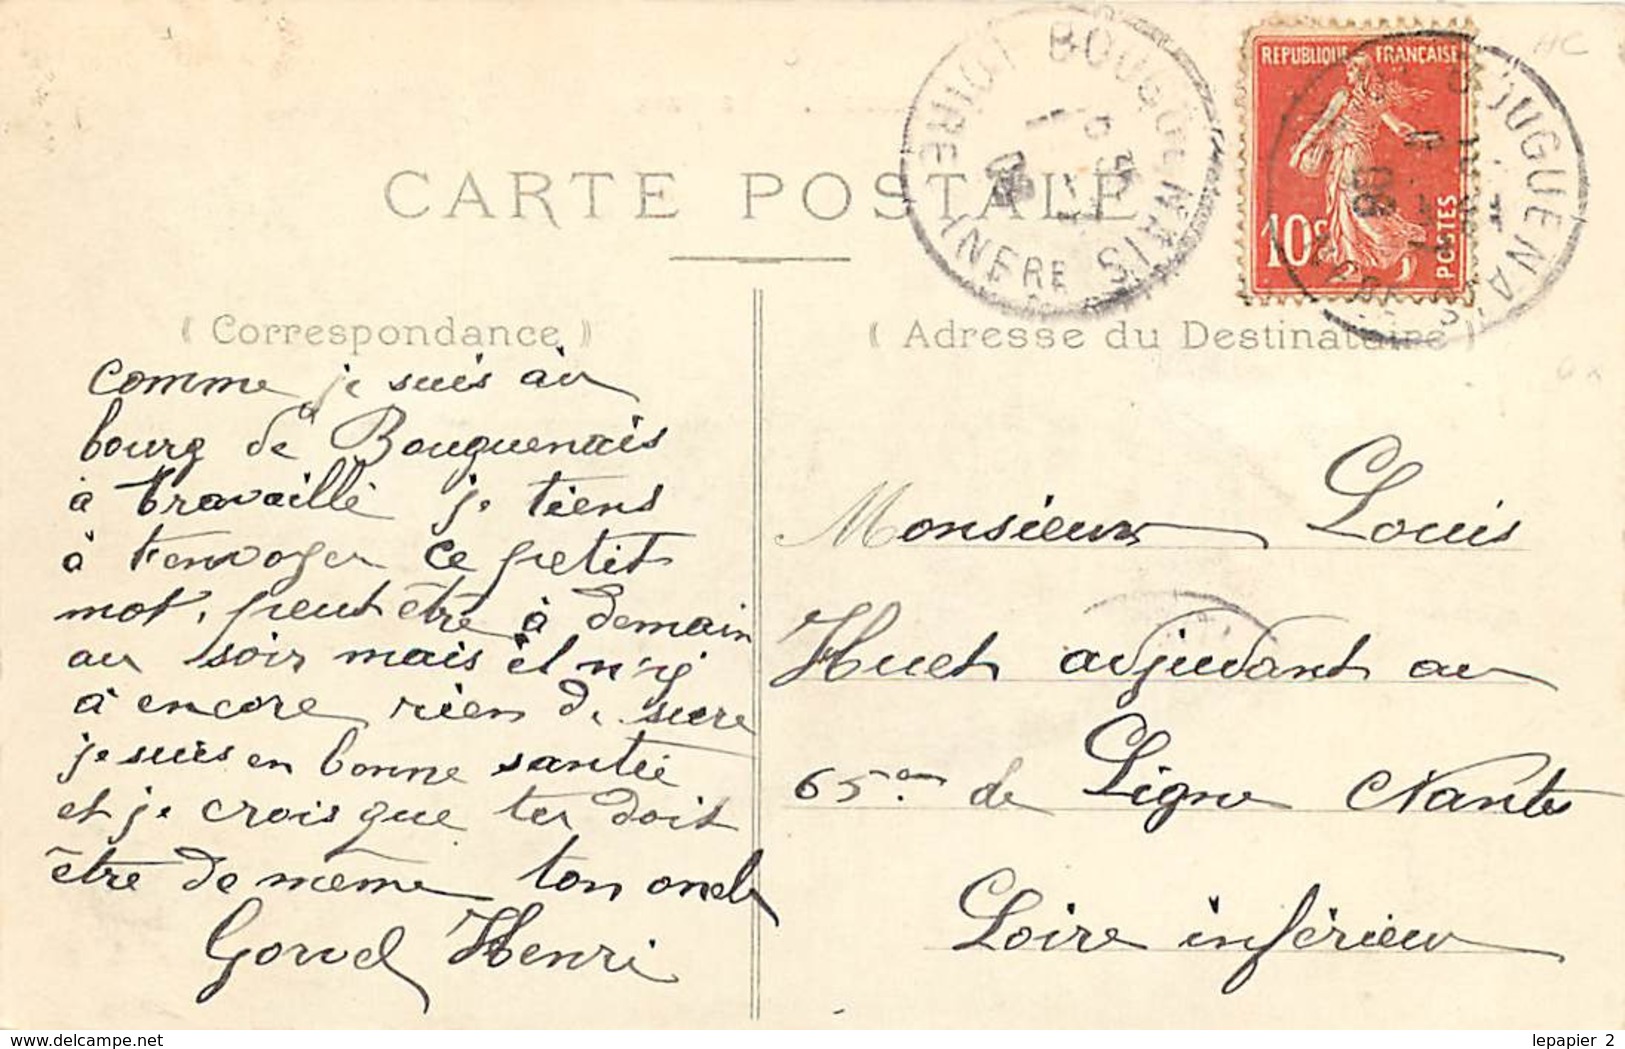 CARTE POSTALE
BOUGUENAIS
LOIRE INFRE
REPUBLIQUE FRANÇAISE
10c
POSTES
BOUGUENAIS
08
( Correspondance )
comme je suis au
bourg de Bouguenais
à travaillé je tiens
à t'envoyer ce petit
mot, peut être à demain
au soir mais il n'y
à encore rien de sure
je suis en bonne santée
et je crois que tu doit
être de même ton oncle
Henri
( Adresse du Destinataire )
Monsieur Louis
Huet adjudant au
65em de Ligne Nantes
Loire inférieur
lepapier_2